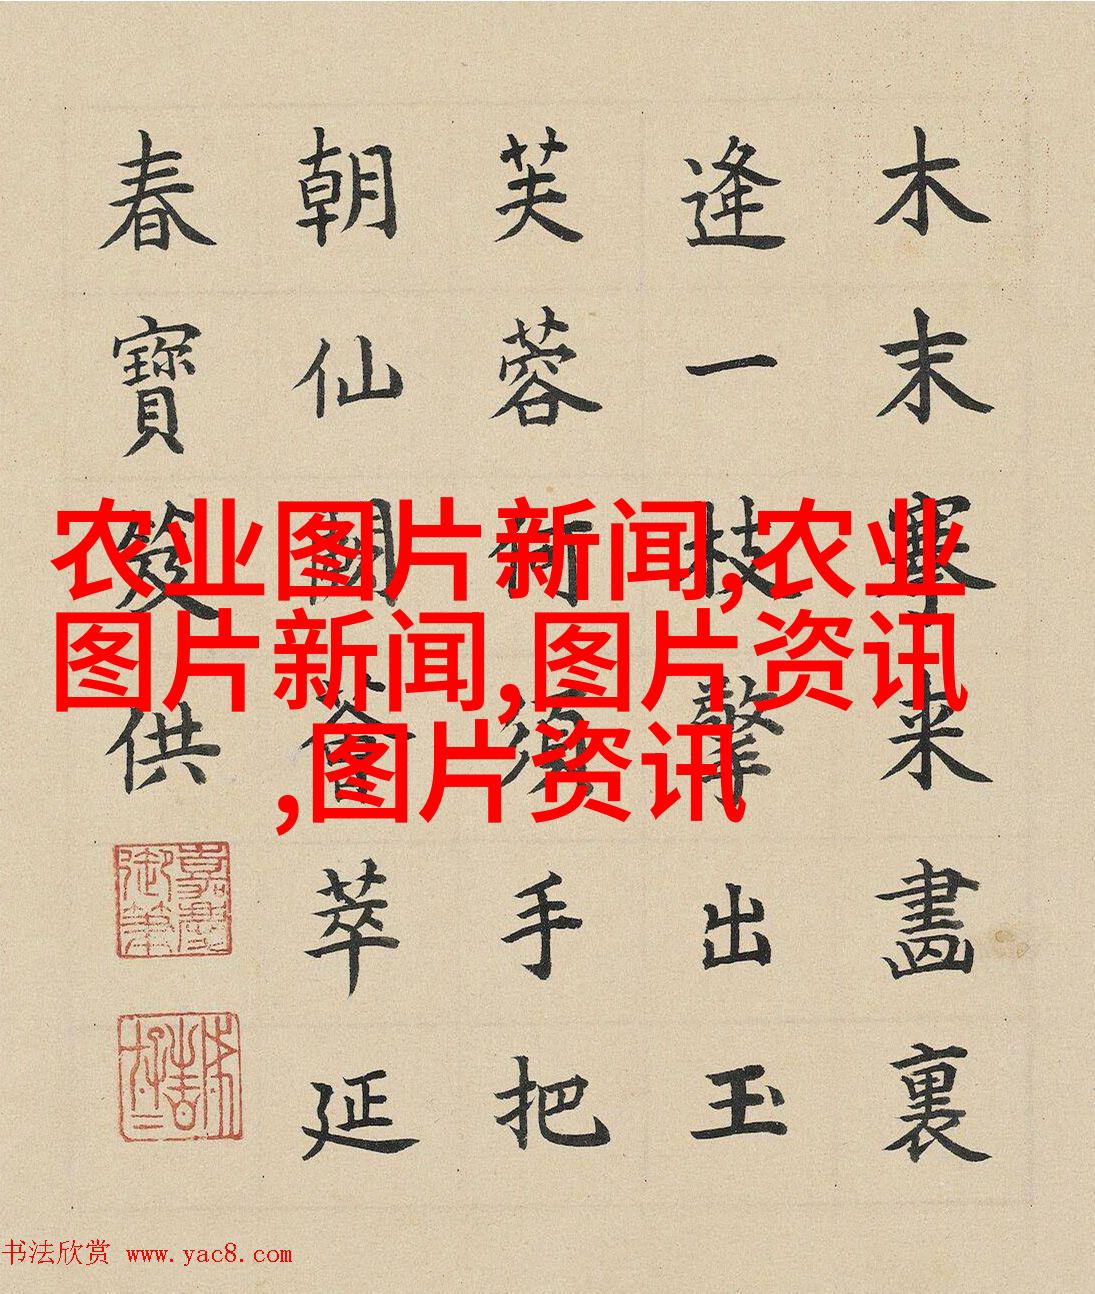 木末搴来畫裏
逢一枝擎出玉
芙蓉須手把
朝仙薈萃延
春寶供
嘉慶御筆
农业图片新闻,农业
图片新闻,图片资讯
,图片资讯
书法欣赏 www.yac8.com